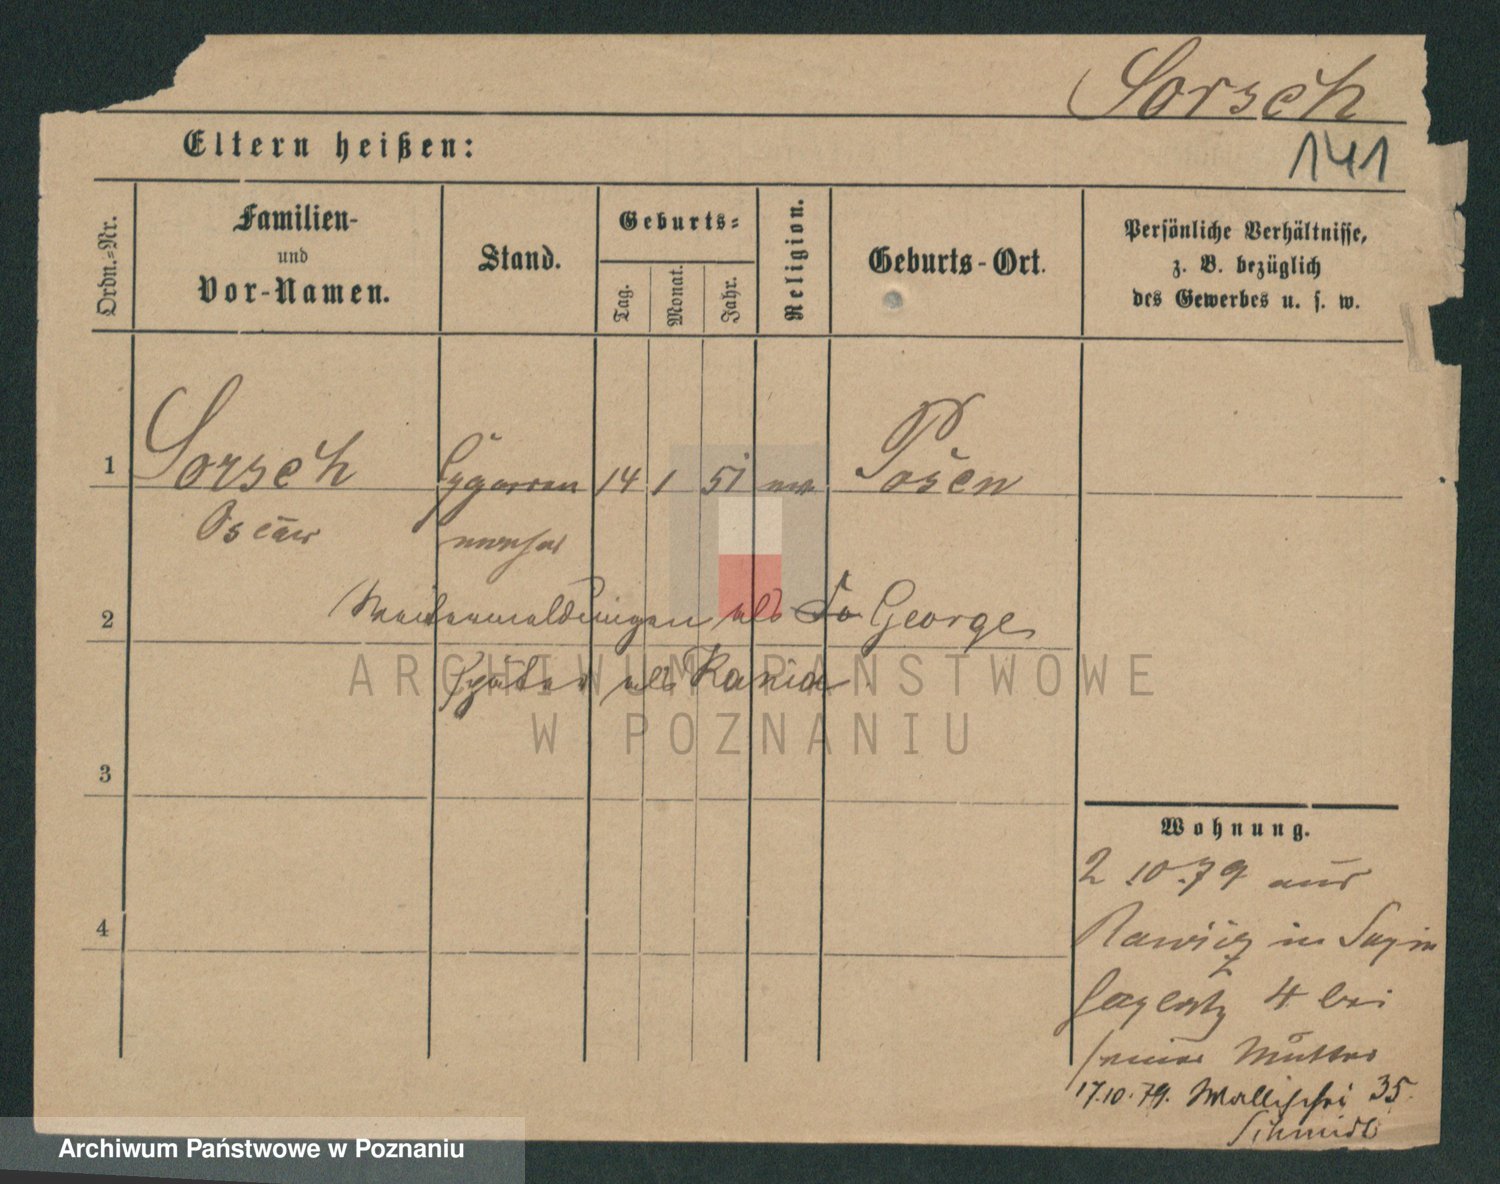 Sorsch
141
Eltern heißen:
Ordn.-Nr.
Familien-
und
Vor-Namen.
Stand.
Geburts-
Tag.
Monat.
Jahr.
Religion.
Geburts-Ort.
Persönliche Verhältnisse,
z. B. bezüglich
des Gewerbes u. s. w.
1 Sorsch 14 1 51 Posen
Oscar
2 als George
später als Rania
3
Wohnung.
2 10.79 aus
Rawicz in
4
4 bei
seiner Mutter
17.10.79. Wallischei 35.
Schmidt
ARCHIWUM PAŃSTWOWE
W POZNANIU
Archiwum Państwowe w Poznaniu